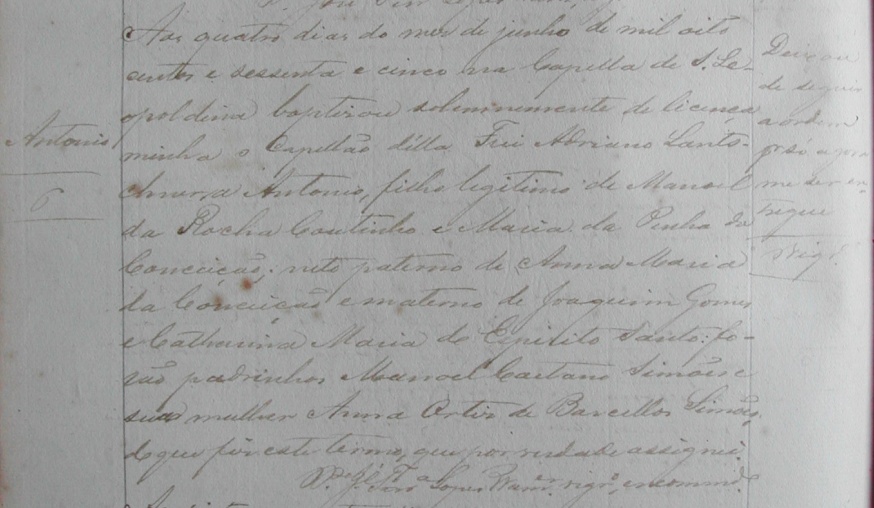 Antonio
6
Aos quatro dias do mes de junho de mil oito
centos e sessenta e cinco na Capella de S. Le-
opoldina baptizou solemnemente de licença
minha o Capellão d'ella Frei Adriano Lants-
Antonio, filho legitimo de Manoel
da Rocha Coutinho e Maria da Penha da
Conceição; neto paterno de Anna Maria
da Conceição e materno de Joaquim Gomes
e Catharina Maria do Espirito Santo; fo-
rão padrinhos Manoel Caetano Simões e
sua mulher Anna de Barcellos Simões,
do que fiz este termo, que por verdade assignei.
Lopes vigr.º encommd.º
Deixou
de seguir
a ordem
me ser en-
tregue
Vigr.º